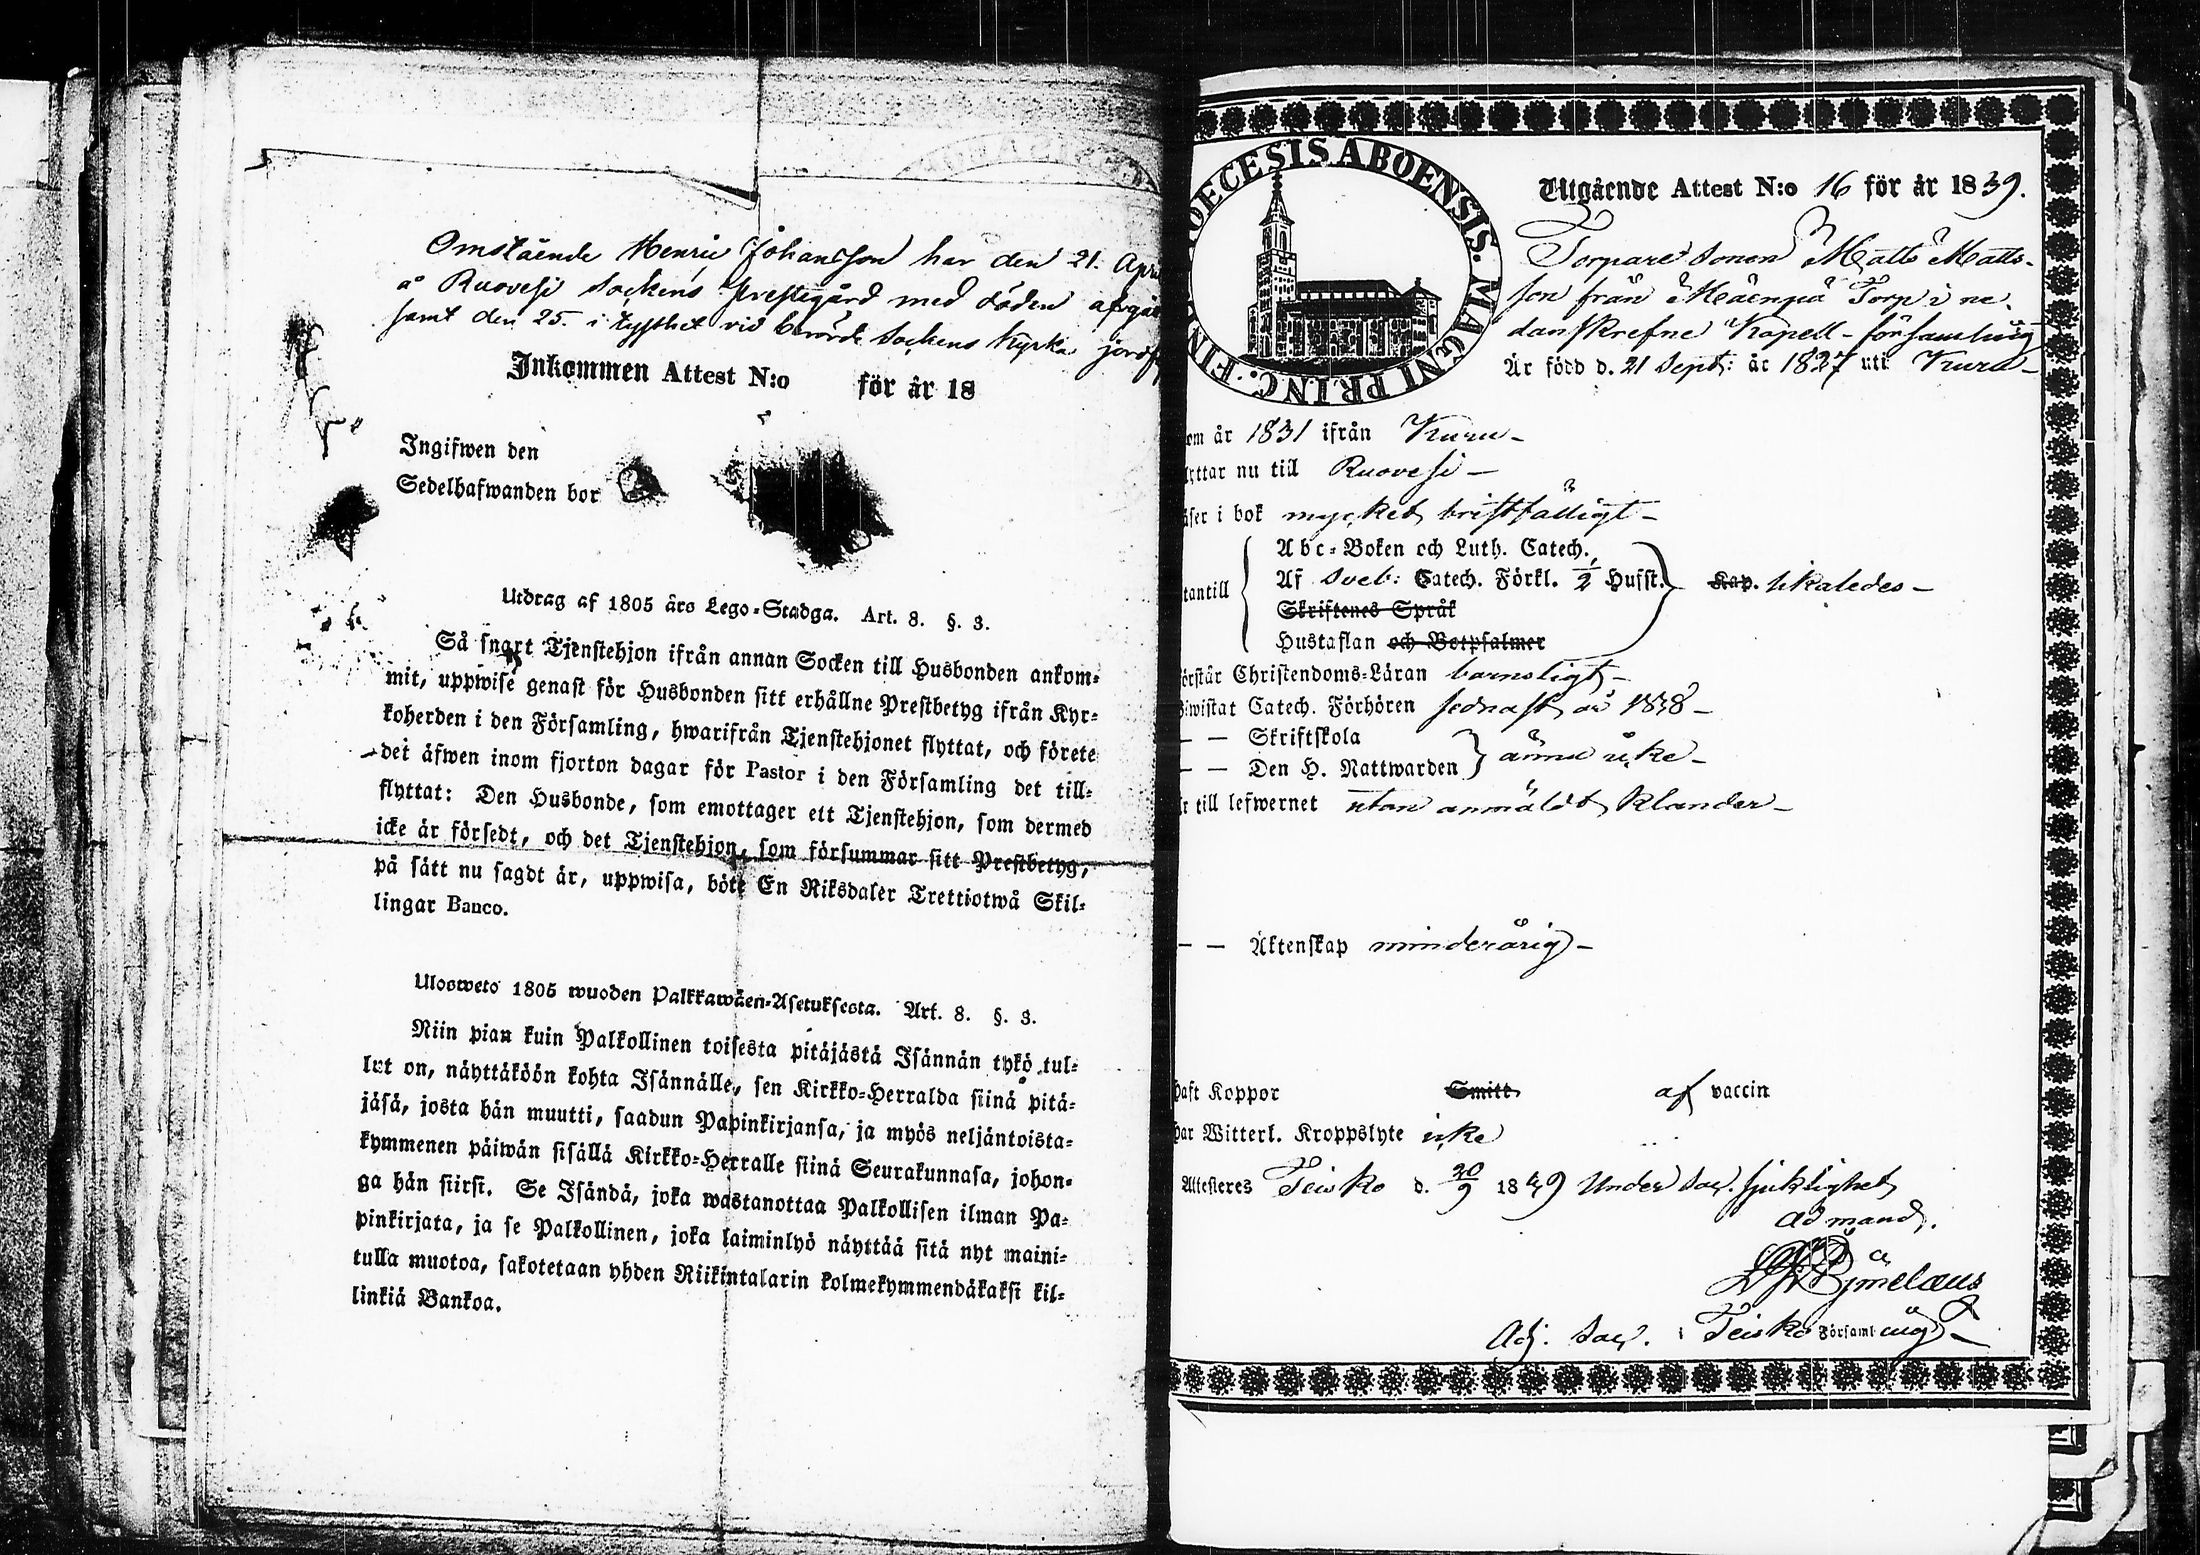 Omstående Henric Johansson har den 21. Apr
å Ruovesi Sockens Prestegård med döden afgåt
samt den 25. i tysthet vid berörde Sockens Kyrka jordf
Inkommen Attest N:o för år 18
Ingifwen den
Sedelhafwanden bor
Utdrag af 1805 års Lego-Stadga. Art. 8. §. 3.
Så snart Tjenstehjon ifrån annan Socken till Husbonden ankom-
mit, uppwise genast för Husbonden sitt erhållne Prestbetyg ifrån Kyr-
koherden i den Församling, hwarifrån Tjenstehjonet flyttat, och förete
det äfwen inom fjorton dagar för Pastor i den Församling det till-
flyttat: Den Husbonde, som emottager ett Tjenstehjon, som dermed
icke är försedt, och det Tjenstehjon, som försummar sitt Prestbetyg,
på sätt nu sagdt är, uppwisa, böte En Riksdaler Trettiotwå Skil-
lingar Banco.
Ulosweto 1805 wuoden Palkkawäen-Asetuksesta. Art. 8. §. 3.
Niin pian kuin Palkollinen toisesta pitäjästä Isännän tykö tul-
lut on, näyttäköön kohta Isännälle, sen Kirkko-Herralda siinä pitä-
jäsä, josta hän muutti, saadun Papinkirjansa, ja myös neljäntoista-
kymmenen päiwän sisällä Kirkko-Herralle siinä Seurakunnasa, johon-
ga hän siirsi. Se Isändä, joka wastanottaa Palkollisen ilman Pa-
pinkirjata, ja se Palkollinen, joka laiminlyö näyttää sitä nyt maini-
tulla muotoa, sakotetaan yhden Riikintalarin kolmekymmendäkaksi kil-
linkiä Bankoa.
DIOECESIS ABOENSIS. MAGNI PRINC. FIN
Utgående Attest N:o 16 för år 1839.
Torpare Sonen Matts Matts-
son från Mäenpä Torp i ne-
danskrefne Kapell-församling
Är född d. 21 Sept: år 1827 uti Kuru-
om år 1831 ifrån Kuru-
lyttar nu till Ruovesi-
äser i bok mycket bristfälligt-
Abc-Boken och Luth. Catech.
tantill Af Sveb: Catech. Förkl. 1/2 Husst. Kap. likaledes-
Skriftenes Språk
Hustaflan och Botpsalmer
örstår Christendoms-Läran barnsligt-
iwistat Catech. Förhören sednast år 1838-
- - Skriftskola
- - Den H. Nattwarden ännu icke-
r till lefwernet utan anmäldt klander-
- - Äktenskap minderårig-
haft Koppor Smitt af vaccin
har Witterl. Kroppslyte icke
Attesteras Teisko d. 20/9 1839 Under Sac. sjuklighet
ad mand.
Adj. Sac. i Teisko Församling-